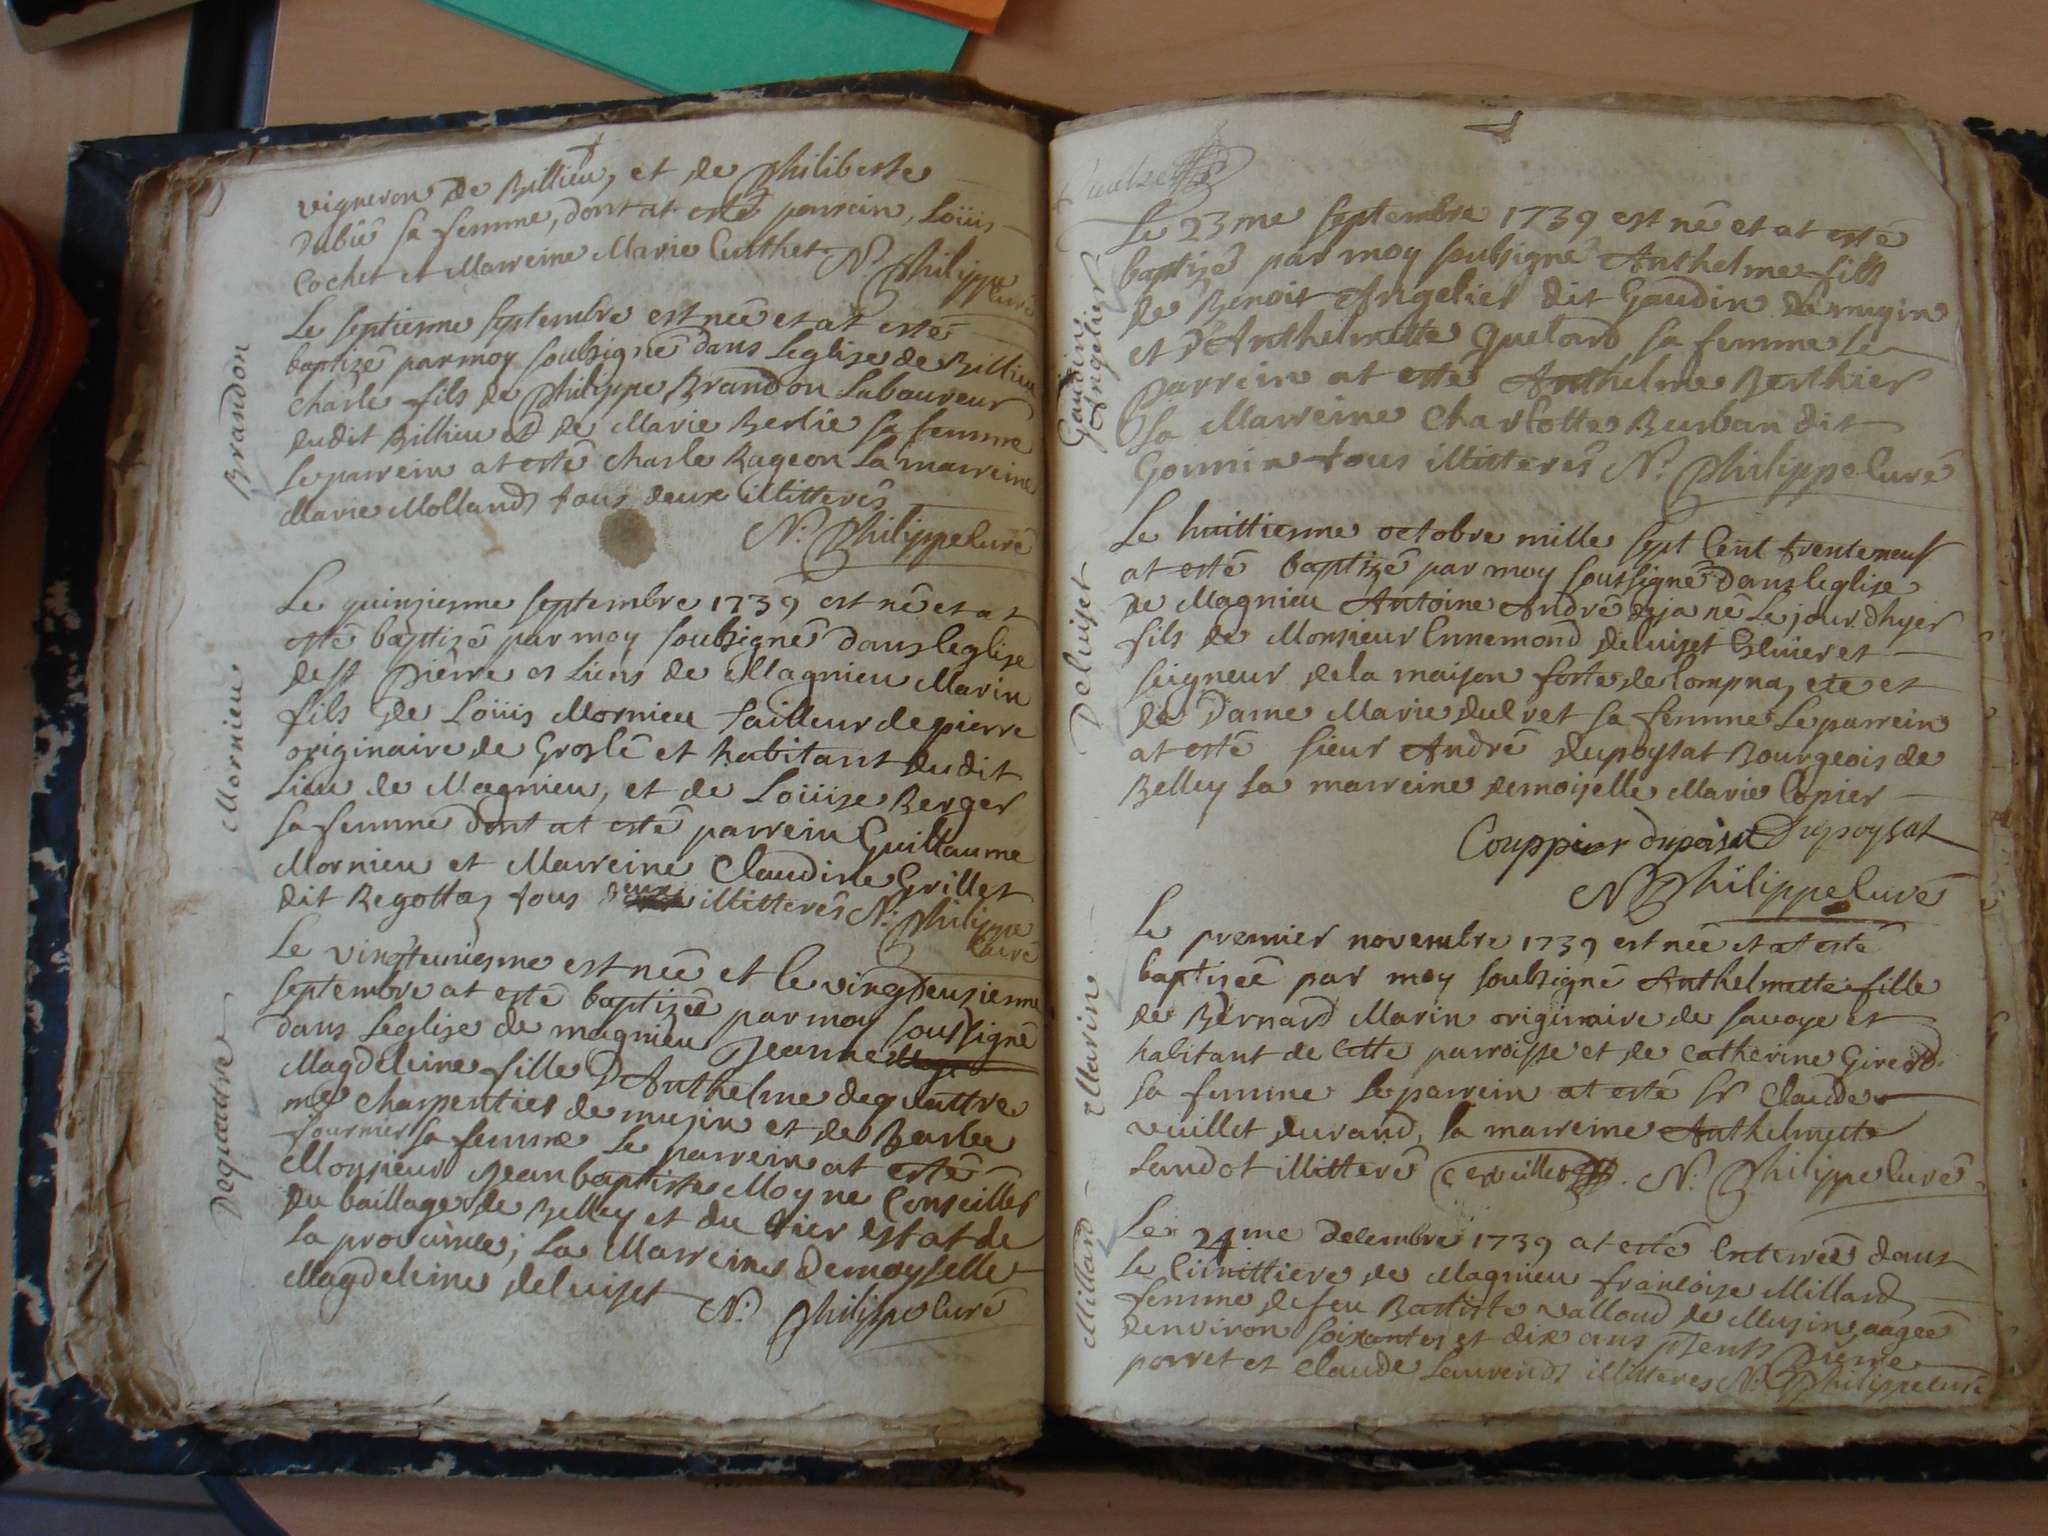 vigneron de Billieu, et de Philiberte
Dubiè sa femme, dont at esté parrein, Loüis
Cochet et Marreine Marie Curthet N. Philippe
Curé
Brandon
Le septiesme septembre est née et at esté
baptizé par moy soubsigné dans Leglise de Billieu
Charle fils de Philippe Brandon Laboureur
dudit Billieu et de Marie Berlie sa femme
Le parrein at esté Charle Rageon La marreine
Marie Molland tous deux illitterés
N. Philippe Curé
Mornieu
Le quinziesme septembre 1739 est né et at
esté baptizé par moy soubsigné dans leglise
de st Pierre es Liens de Magnieu Marin
fils de Loüis Mornieu tailleur de pierre
originaire de Groslé et habitant dudit
Lieu de Magnieu, et de Loüize Berger
sa femme dont at esté parrein Guillaume
Mornieu et Marreine Claudine Grillet
dit Regottaz tous deux illitterés N. Philippe
Curé
Dequattre
Le vingtuniesme est née et le vingdeuziesme
septembre at esté baptizée par moy soussigné
dans Leglise de magnieu Jeanne
Magdeleine fille D'Anthelme dequattre
me Charpentier de muzin et de Barbe
fournier sa femme Le parrein at esté
Monsieur Jean baptiste Moyne Conseiller
du baillage de Belley et du tier estat de
La province; La Marreine Demoyselle
Magdeleine deluiset N. Philippe Curé
Gaudin
Angelier
Le 23me septembre 1739 est né et at esté
baptizé par moy soubsigné Anthelme fils
de Benoit Angelier dit Gaudin de muzin
et D'Anthelmette Quelard sa femme Le
Parrein at esté Anthelme Berthier
La Marreine Charlotte Burban dit
Gonnin tous illitterés N. Philippe Curé
Deluiset
Le huittiesme octobre mille sept Cent trente neuf
at esté baptizé par moy soussigné dans leglise
de Magnieu Antoine André deja né Le jour dhyer
fils de Monsieur Ennemond deluiset Ecuier et
seigneur de la maison forte de Compnaz etc et
de Dame Marie dulret sa femme Le parrein
at esté sieur André dupoysat Bourgeois de
Belley La marreine demoiselle Marie Copier
Couppier dupoisat Dupoysat
N Philippe Curé
Marin
Le premier novembre 1739 est née et at esté
baptizée par moy soubsigné Anthelmette fille
de Bernard Marin originaire de savoye et
habitant de Cette parroisse et de Catherine Girerd
sa femme Le parrein at esté sr Claude
vuillet durand, la marreine Anthelmette
Landot illitteré C vuillet N. Philippe Curé
Milland
Le 24me decembre 1739 at esté Enterrée dans
Le Cimittiere de Magnieu francoise Milland
femme de feu Bastiste valloud de Muzin, aagée
denviron soixantes et dix ans pñts Pierre
porret et Claude Laurend illitteres N. Philippe Curé